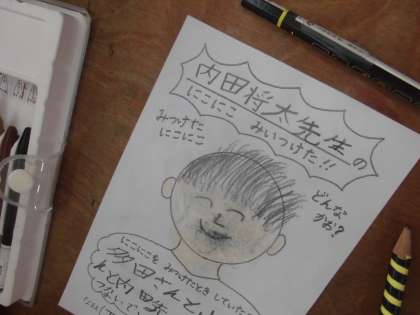 内田将太先生の
にこにこ みいつけた!!
みつけた
にこにこ
どんな
かお?
にこにこを みつけたとき していた
多田さんと
んと内田先